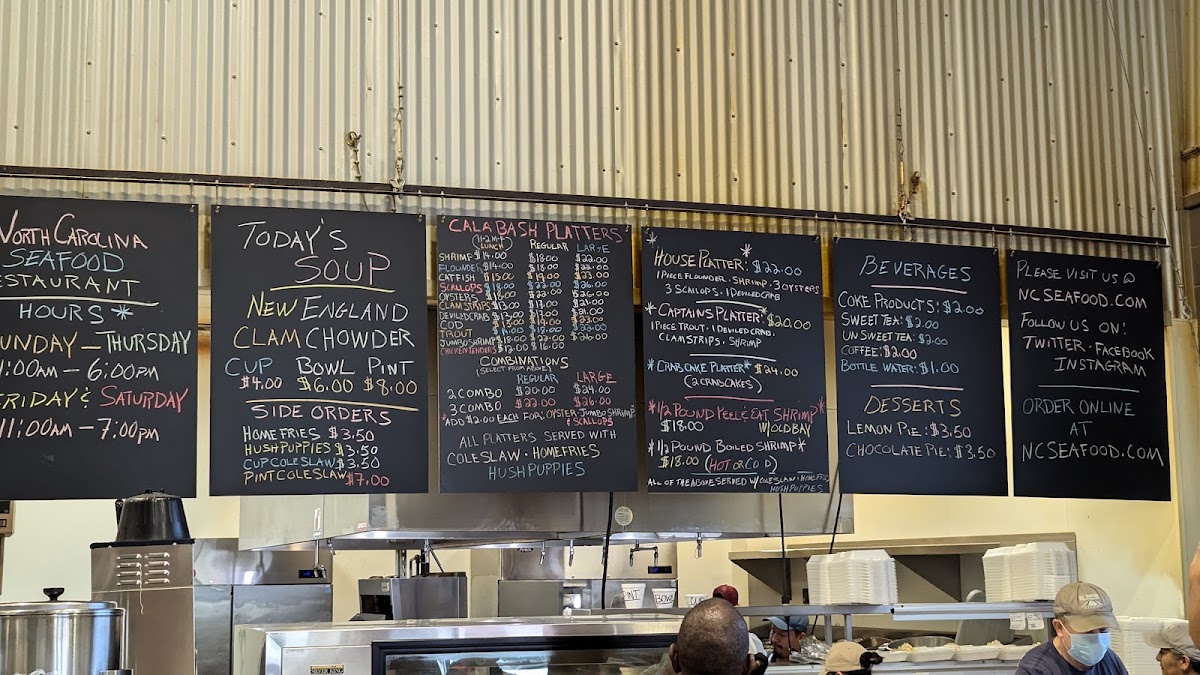 NORTH CAROLINA
SEAFOOD
RESTAURANT
HOURS *
SUNDAY - THURSDAY
11:00AM - 6:00PM
FRIDAY & SATURDAY
11:00AM - 7:00PM
TODAY'S
SOUP
NEW ENGLAND
CLAM CHOWDER
CUP BOWL PINT
$4.00 $6.00 $8.00
SIDE ORDERS
HOME FRIES $3.50
HUSHPUPPIES $3.50
CUP COLESLAW $3.50
PINT COLESLAW $7.00
CALABASH PLATTERS
LUNCH REGULAR LARGE
SHRIMP $14.00 $18.00 $22.00
FLOUNDER $14.00 $18.00 $22.00
CATFISH
SCALLOPS
OYSTERS
CLAM STRIPS
DEVILED CRAB
COD
TROUT
JUMBO SHRIMP
CHICKEN TENDERS $12.00 $16.00
COMBINATIONS
(SELECT FROM ABOVE)
REGULAR LARGE
2 COMBO $20.00 $24.00
3 COMBO $22.00 $26.00
*ADD $2.00 EACH FOR: OYSTER · JUMBO SHRIMP
& SCALLOPS
ALL PLATTERS SERVED WITH
COLESLAW · HOMEFRIES
HUSHPUPPIES
*
HOUSE PLATTER: $22.00
1 PIECE FLOUNDER · SHRIMP · 3 OYSTERS
3 SCALLOPS · 1 DEVILED CRAB
*CAPTAINS PLATTER* $20.00
1 PIECE TROUT · 1 DEVILED CRAB,
CLAMSTRIPS · SHRIMP
*CRABCAKE PLATTER* $24.00
(2 CRABCAKES)
*1/2 POUND PEEL & EAT SHRIMP*
$18.00 W/OLD BAY
*1/2 POUND BOILED SHRIMP*
$18.00 (HOT OR COLD)
ALL OF THE ABOVE SERVED W/ COLESLAW · HOMEFRIES
HUSHPUPPIES
BEVERAGES
COKE PRODUCTS: $2.00
SWEET TEA: $2.00
UNSWEET TEA: $2.00
COFFEE: $2.00
BOTTLE WATER: $1.00
DESSERTS
LEMON PIE: $3.50
CHOCOLATE PIE: $3.50
PLEASE VISIT US @
NCSEAFOOD.COM
FOLLOW US ON:
TWITTER · FACEBOOK
INSTAGRAM
ORDER ONLINE
AT
NCSEAFOOD.COM
PINT BOWL CUP
SILVER KING